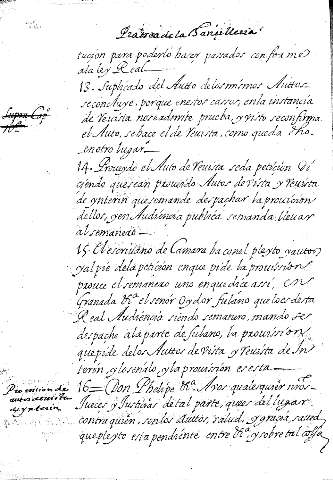 Practica de la Chançilleria
tucion para poderlo hazer passados conforme
ala ley Real
13. Suplicado del Auto de los mismos Auttos
se concluye, porque en estos cassos, en la instancia
de Revista no se admite prueba, y visto se confirma
el Auto, se hace el de Revista, como queda dho
en otro lugar
14. Proveydo el Auto de Revista se da petición di
ciendo que se an proveydo Autos de Vista y Revista
de ynterin que se mande despachar la provission
dellos, y en Audiencia publica se manda llevar
al semanero
15. El escrivano de Camara ba con el pleyto y autos
y al pie de la petición en que pide la provission
provee el semanero uno que dice assi, en
Granada &a. el señor Oydor fulano que lo es desta
Real Audiencia siendo semanero, mando se
despache a la parte de fulano, la provission
que pide de los Auttos de Vista y Revista de In
terin, y lo señalo, y la provission es esta
Provission de
autos de vista
de ynterin
16. Don Phelipe &a. A vos qualesquier nros
Jueces y Justicias de tal parte, que es del lugar
contra quien, son los Auttos, salud y gracia, saved
que pleyto esta pendiente entre &a. y sobre tal cossa